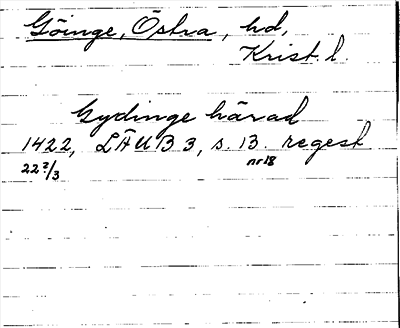 Göinge, Östra, hd,
Krist. l.
Gydinge härad
1422, LÄUB 3, s. 13. regest
22 2/3 nr 18